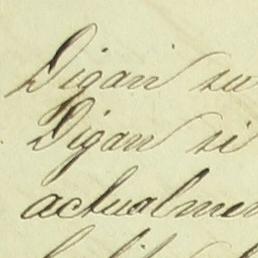 Digan su
Digan si
actualmen